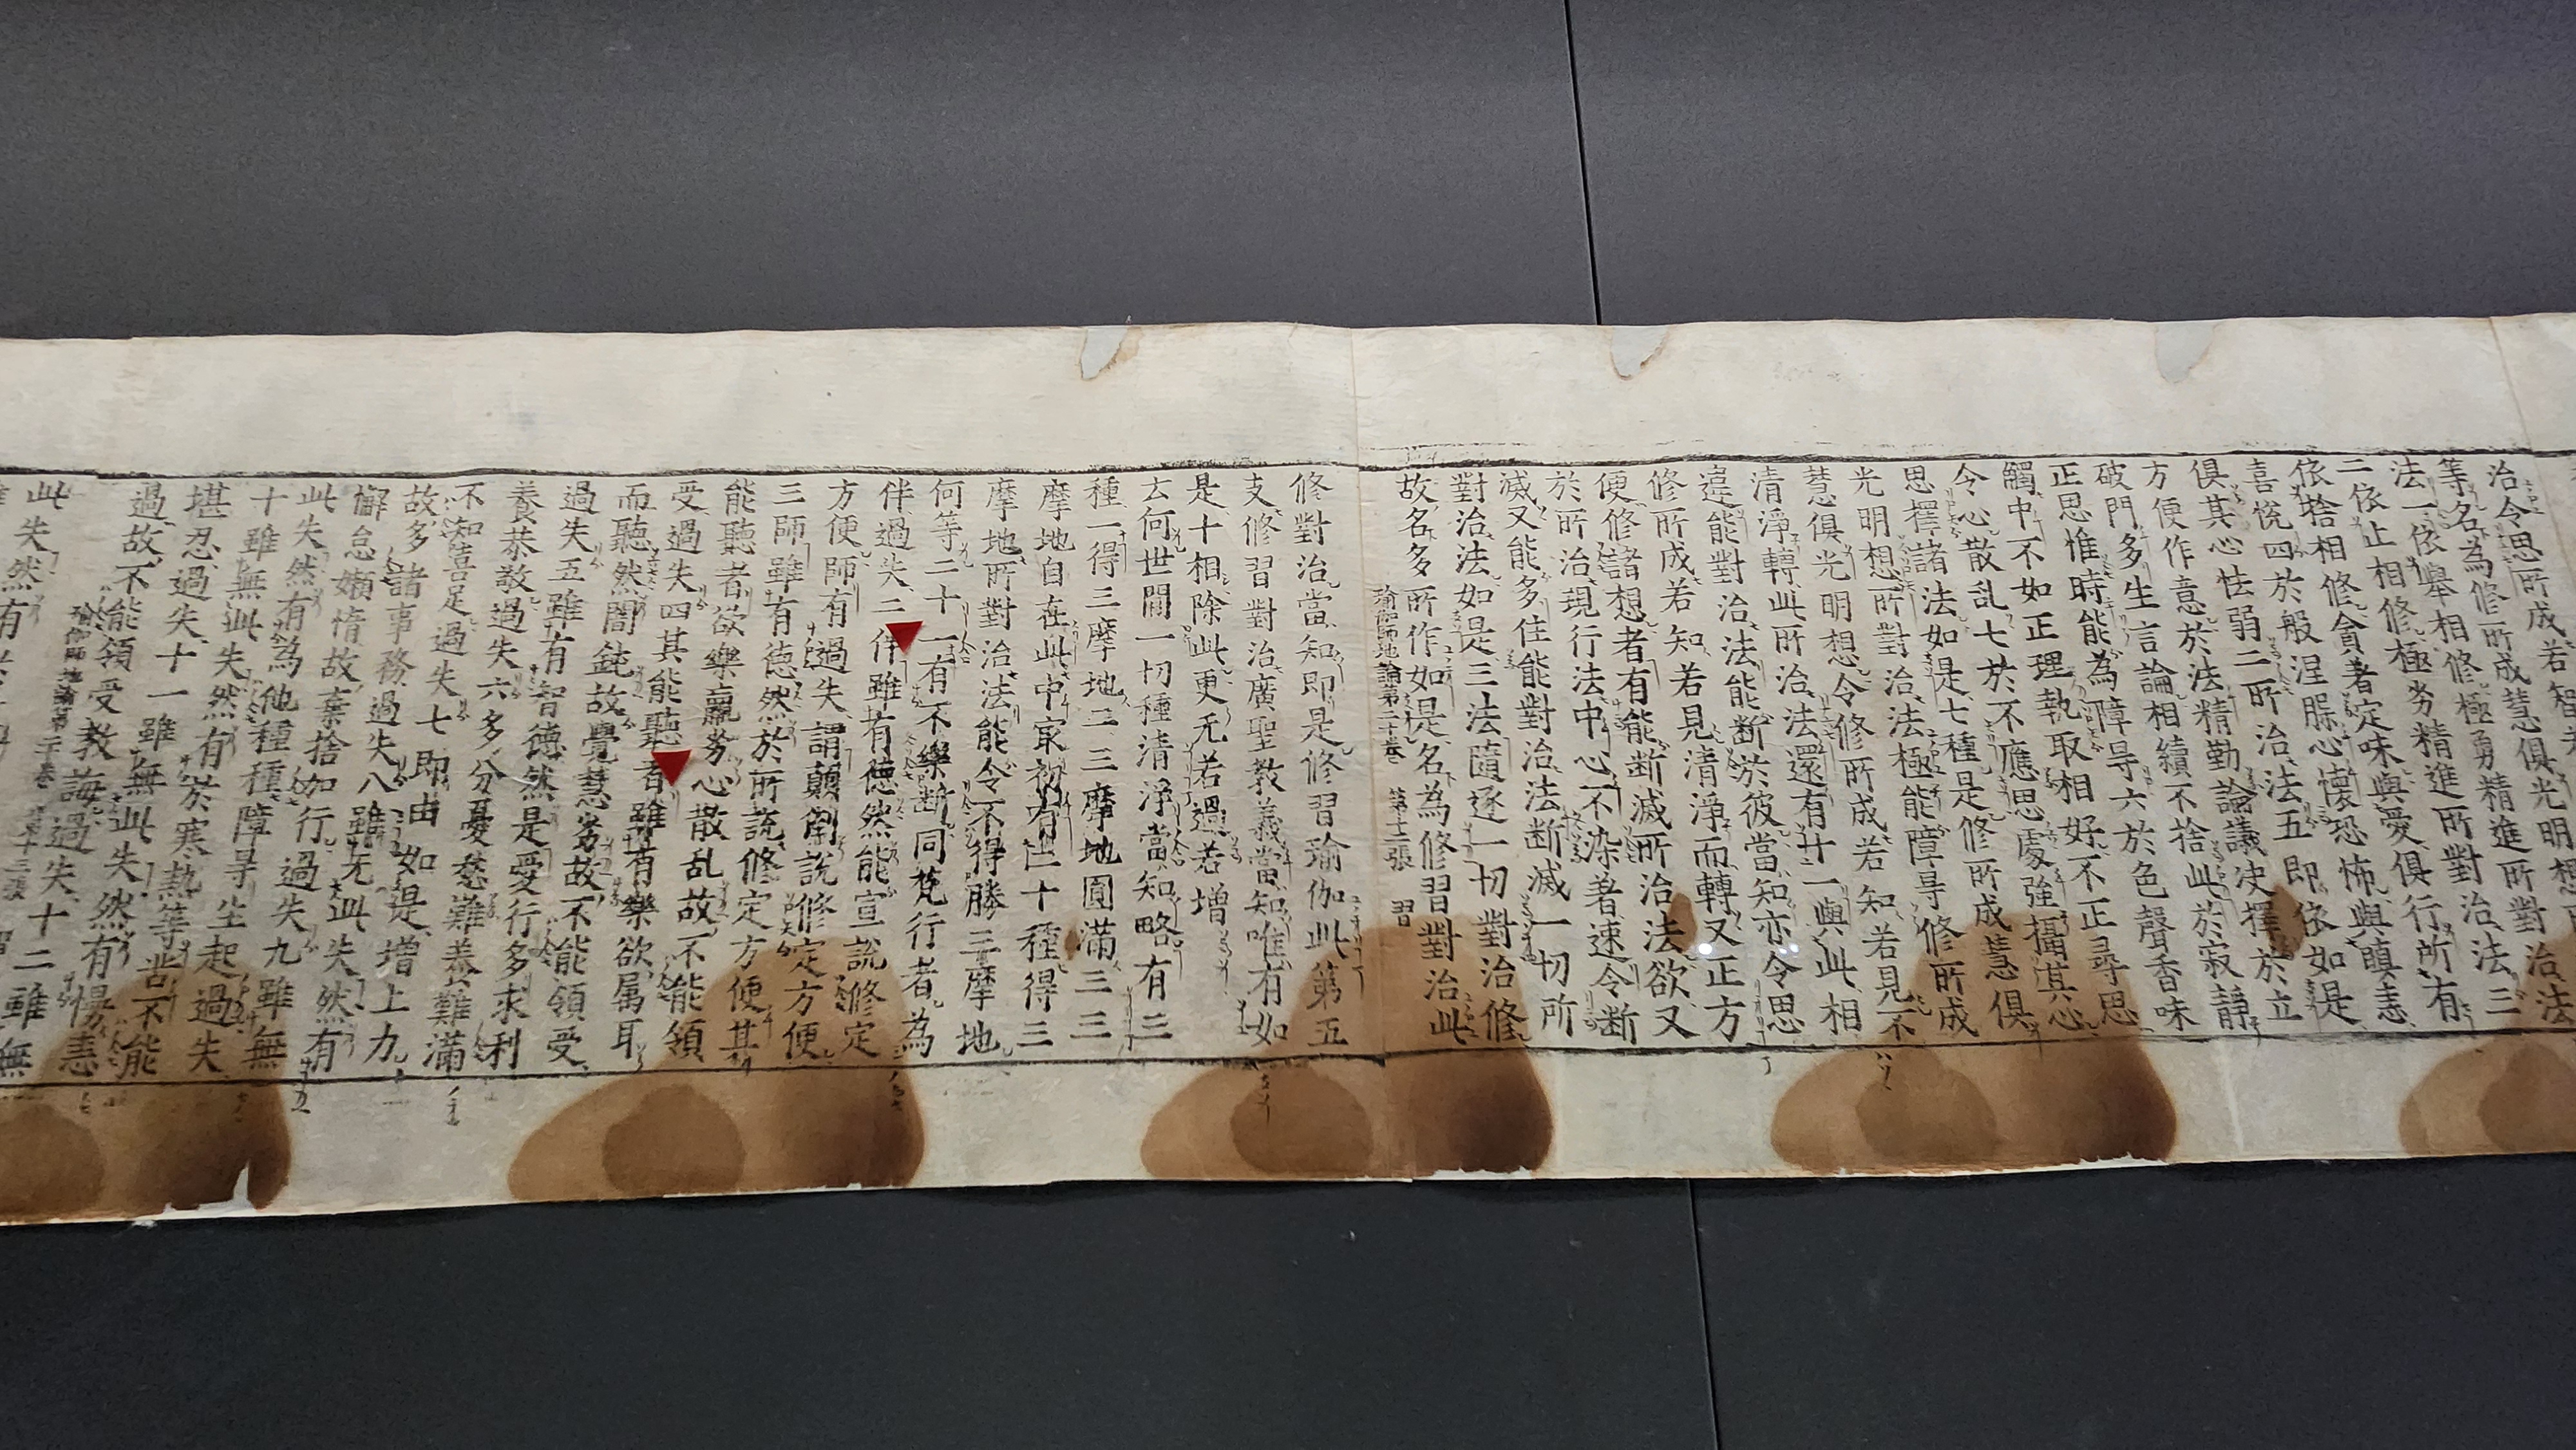 治令思所成若智者
等名為修所成慧俱光明想
法一依舉相修極勇精進所對治法
二依止相修極劣精進所對治法三
依捨相修貪著定味與愛俱行所有
喜悅四於般涅膓心懷恐怖與瞋恚
俱其心怯弱二所治法五即依如是
方便作意於法精勤論議決擇於立
破門多生言論相續不捨此於寂靜
正思惟時能為障㝵六於色聲香味
觸中不如正理執取相好不正尋思
令心散乱七於不應思處強攝其心
思擇諸法如是七種是修所成慧俱
光明想所對治法極能障㝵修所成
慧俱光明想令修所成若知若見不
清淨轉此所治法還有廿一與此相
違能對治法能断於彼當知亦令思
修所成若知若見清淨而轉又正方
便修諸想者有能断滅所治法欲又
於所治現行法中心不染著速令断
滅又能多住能對治法断滅一切所
對治法如是三法隨逐一切對治修
故名多所作如是名為修習對治此
瑜伽師地論第二十卷 第十二張 習
修對治當知即是修習瑜伽此第五
支修習對治廣聖教義當知唯有如
是十相除此更无若過若增
云何世間一切種清淨當知略有三
種一得三摩地二三摩地圓滿三三
摩地自在此中冣初有二十種得三
摩地所對治法能令不得勝三摩地
何等二十一有不樂断同梵行者為
伴過失二伴雖有德然能宣說修定
方便師有過失謂顛倒說修定方便
三師雖有德然於所說修定方便其
能聽者欲樂羸劣心散乱故不能領
受過失四其能聽者雖有樂欲属耳
而聽然闇鈍故覺慧劣故不能領受
過失五雖有智德然是愛行多求利
養恭敬過失六多分憂愁難養難滿
不知喜足過失七即由如是增上力
故多諸事務過失八雖无此失然有
懈怠嬾惰故棄捨加行過失九雖無
此失然有為他種種障㝵生起過失
十雖無此失然有於寒熱等苦不能
堪忍過失十一雖無此失然有慢恚
過故不能領受教誨過失十二雖無
瑜伽師地論第二十卷 第十三張 習
此失然有於